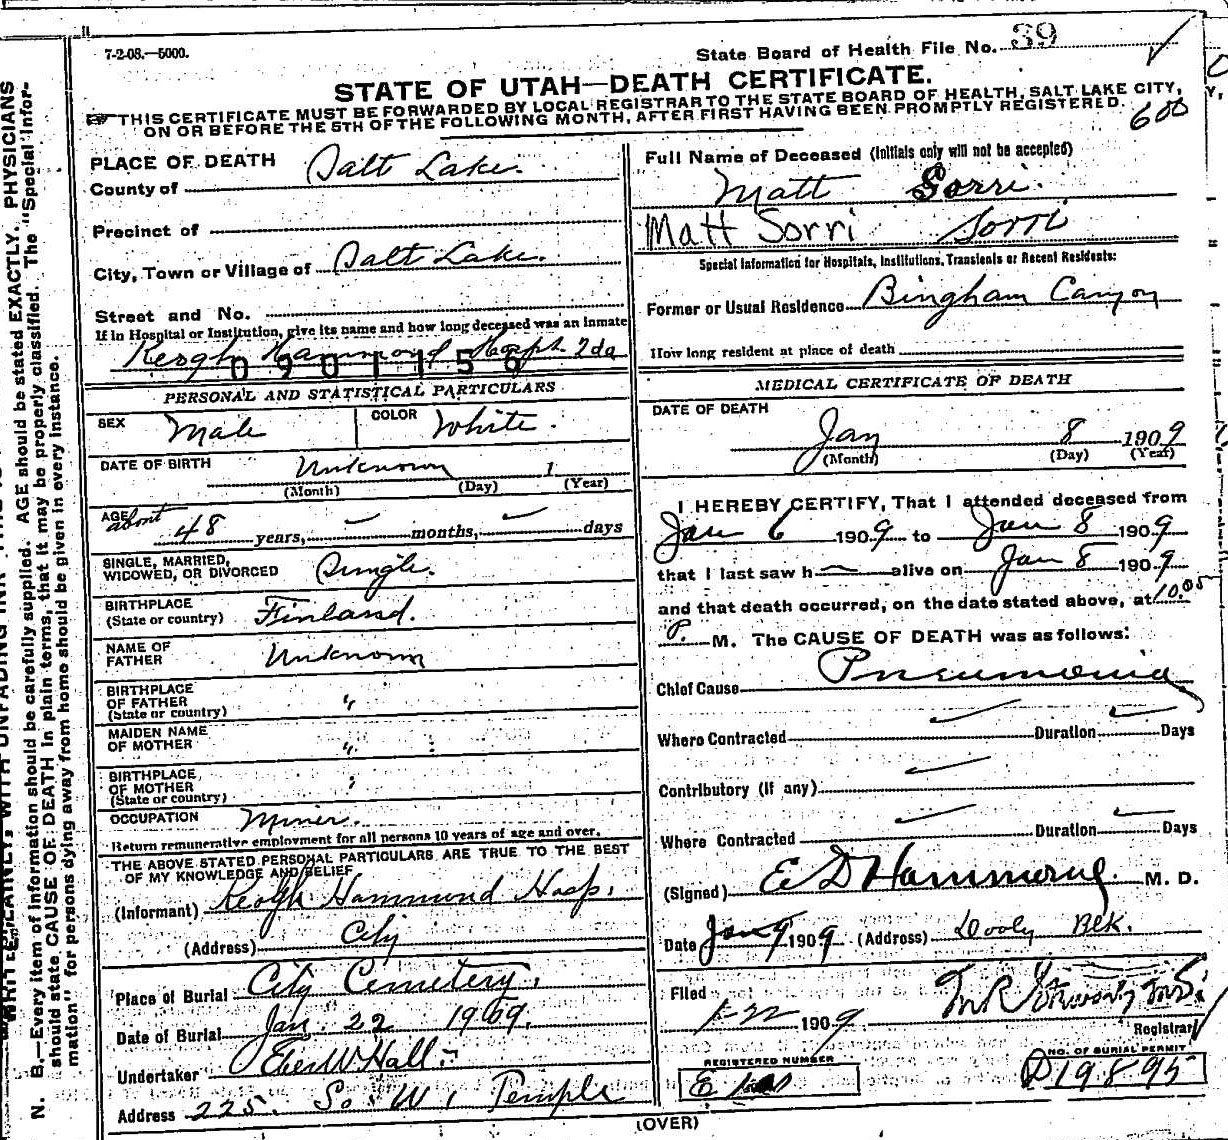 7-2-08.—5000.
State Board of Health File No. 39
STATE OF UTAH—DEATH CERTIFICATE.
THIS CERTIFICATE MUST BE FORWARDED BY LOCAL REGISTRAR TO THE STATE BOARD OF HEALTH, SALT LAKE CITY,
ON OR BEFORE THE 5TH OF THE FOLLOWING MONTH, AFTER FIRST HAVING BEEN PROMPTLY REGISTERED.
600
PLACE OF DEATH
County of Salt Lake.
Precinct of
City, Town or Village of Salt Lake.
Street and No.
If in Hospital or Institution, give its name and how long deceased was an inmate
Keogh Hammond Hosp. 2 da
0901156
PERSONAL AND STATISTICAL PARTICULARS
SEX Male COLOR White.
DATE OF BIRTH Unknown 1
(Month) (Day) (Year)
AGE about 48 years, months, days
SINGLE, MARRIED,
WIDOWED, OR DIVORCED Single.
BIRTHPLACE
(State or country) Finland.
NAME OF
FATHER Unknown
BIRTHPLACE
OF FATHER "
(State or country)
MAIDEN NAME
OF MOTHER "
BIRTHPLACE
OF MOTHER "
(State or country)
OCCUPATION Miner.
Return remunerative employment for all persons 10 years of age and over.
THE ABOVE STATED PERSONAL PARTICULARS ARE TRUE TO THE BEST
OF MY KNOWLEDGE AND BELIEF
(Informant) Keogh Hammond Hosp.
(Address) City
Place of Burial City Cemetery.
Date of Burial Jan. 22 1909.
Undertaker Eber W Hall
Address 225. So. W. Temple
Full Name of Deceased (Initials only will not be accepted)
Matt Sorri.
Matt Sorri Sorri
Special Information for Hospitals, Institutions, Transients or Recent Residents:
Former or Usual Residence Bingham Canyon
How long resident at place of death
MEDICAL CERTIFICATE OF DEATH
DATE OF DEATH
Jan 8 1909
(Month) (Day) (Year)
I HEREBY CERTIFY, That I attended deceased from
Jan 6 1909 to Jan 8 1909
that I last saw h alive on Jan 8 1909
and that death occurred, on the date stated above, at 10.05
P. M. The CAUSE OF DEATH was as follows:
Chief Cause Pneumonia
Where Contracted Duration Days
Contributory (if any)
Where Contracted Duration Days
(Signed) E D Hammond. M. D.
Date Jan 9 1909 (Address) Dooly Blk.
Filed
1-22 1909
Registrar
REGISTERED NUMBER
E
NO. OF BURIAL PERMIT
D19895
(OVER)
N. B.—Every item of information should be carefully supplied. AGE should be stated EXACTLY. PHYSICIANS
should state CAUSE OF DEATH in plain terms, that it may be properly classified. The "Special Infor-
mation" for persons dying away from home should be given in every instance.